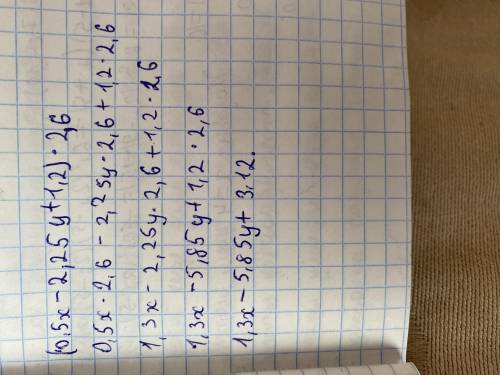 (0,5x - 2,25y + 1,2) · 2,6
0,5x · 2,6 - 2,25y · 2,6 + 1,2 · 2,6
1,3x - 2,25y · 2,6 + 1,2 · 2,6
1,3x - 5,85y + 1,2 · 2,6
1,3x - 5,85y + 3,12.